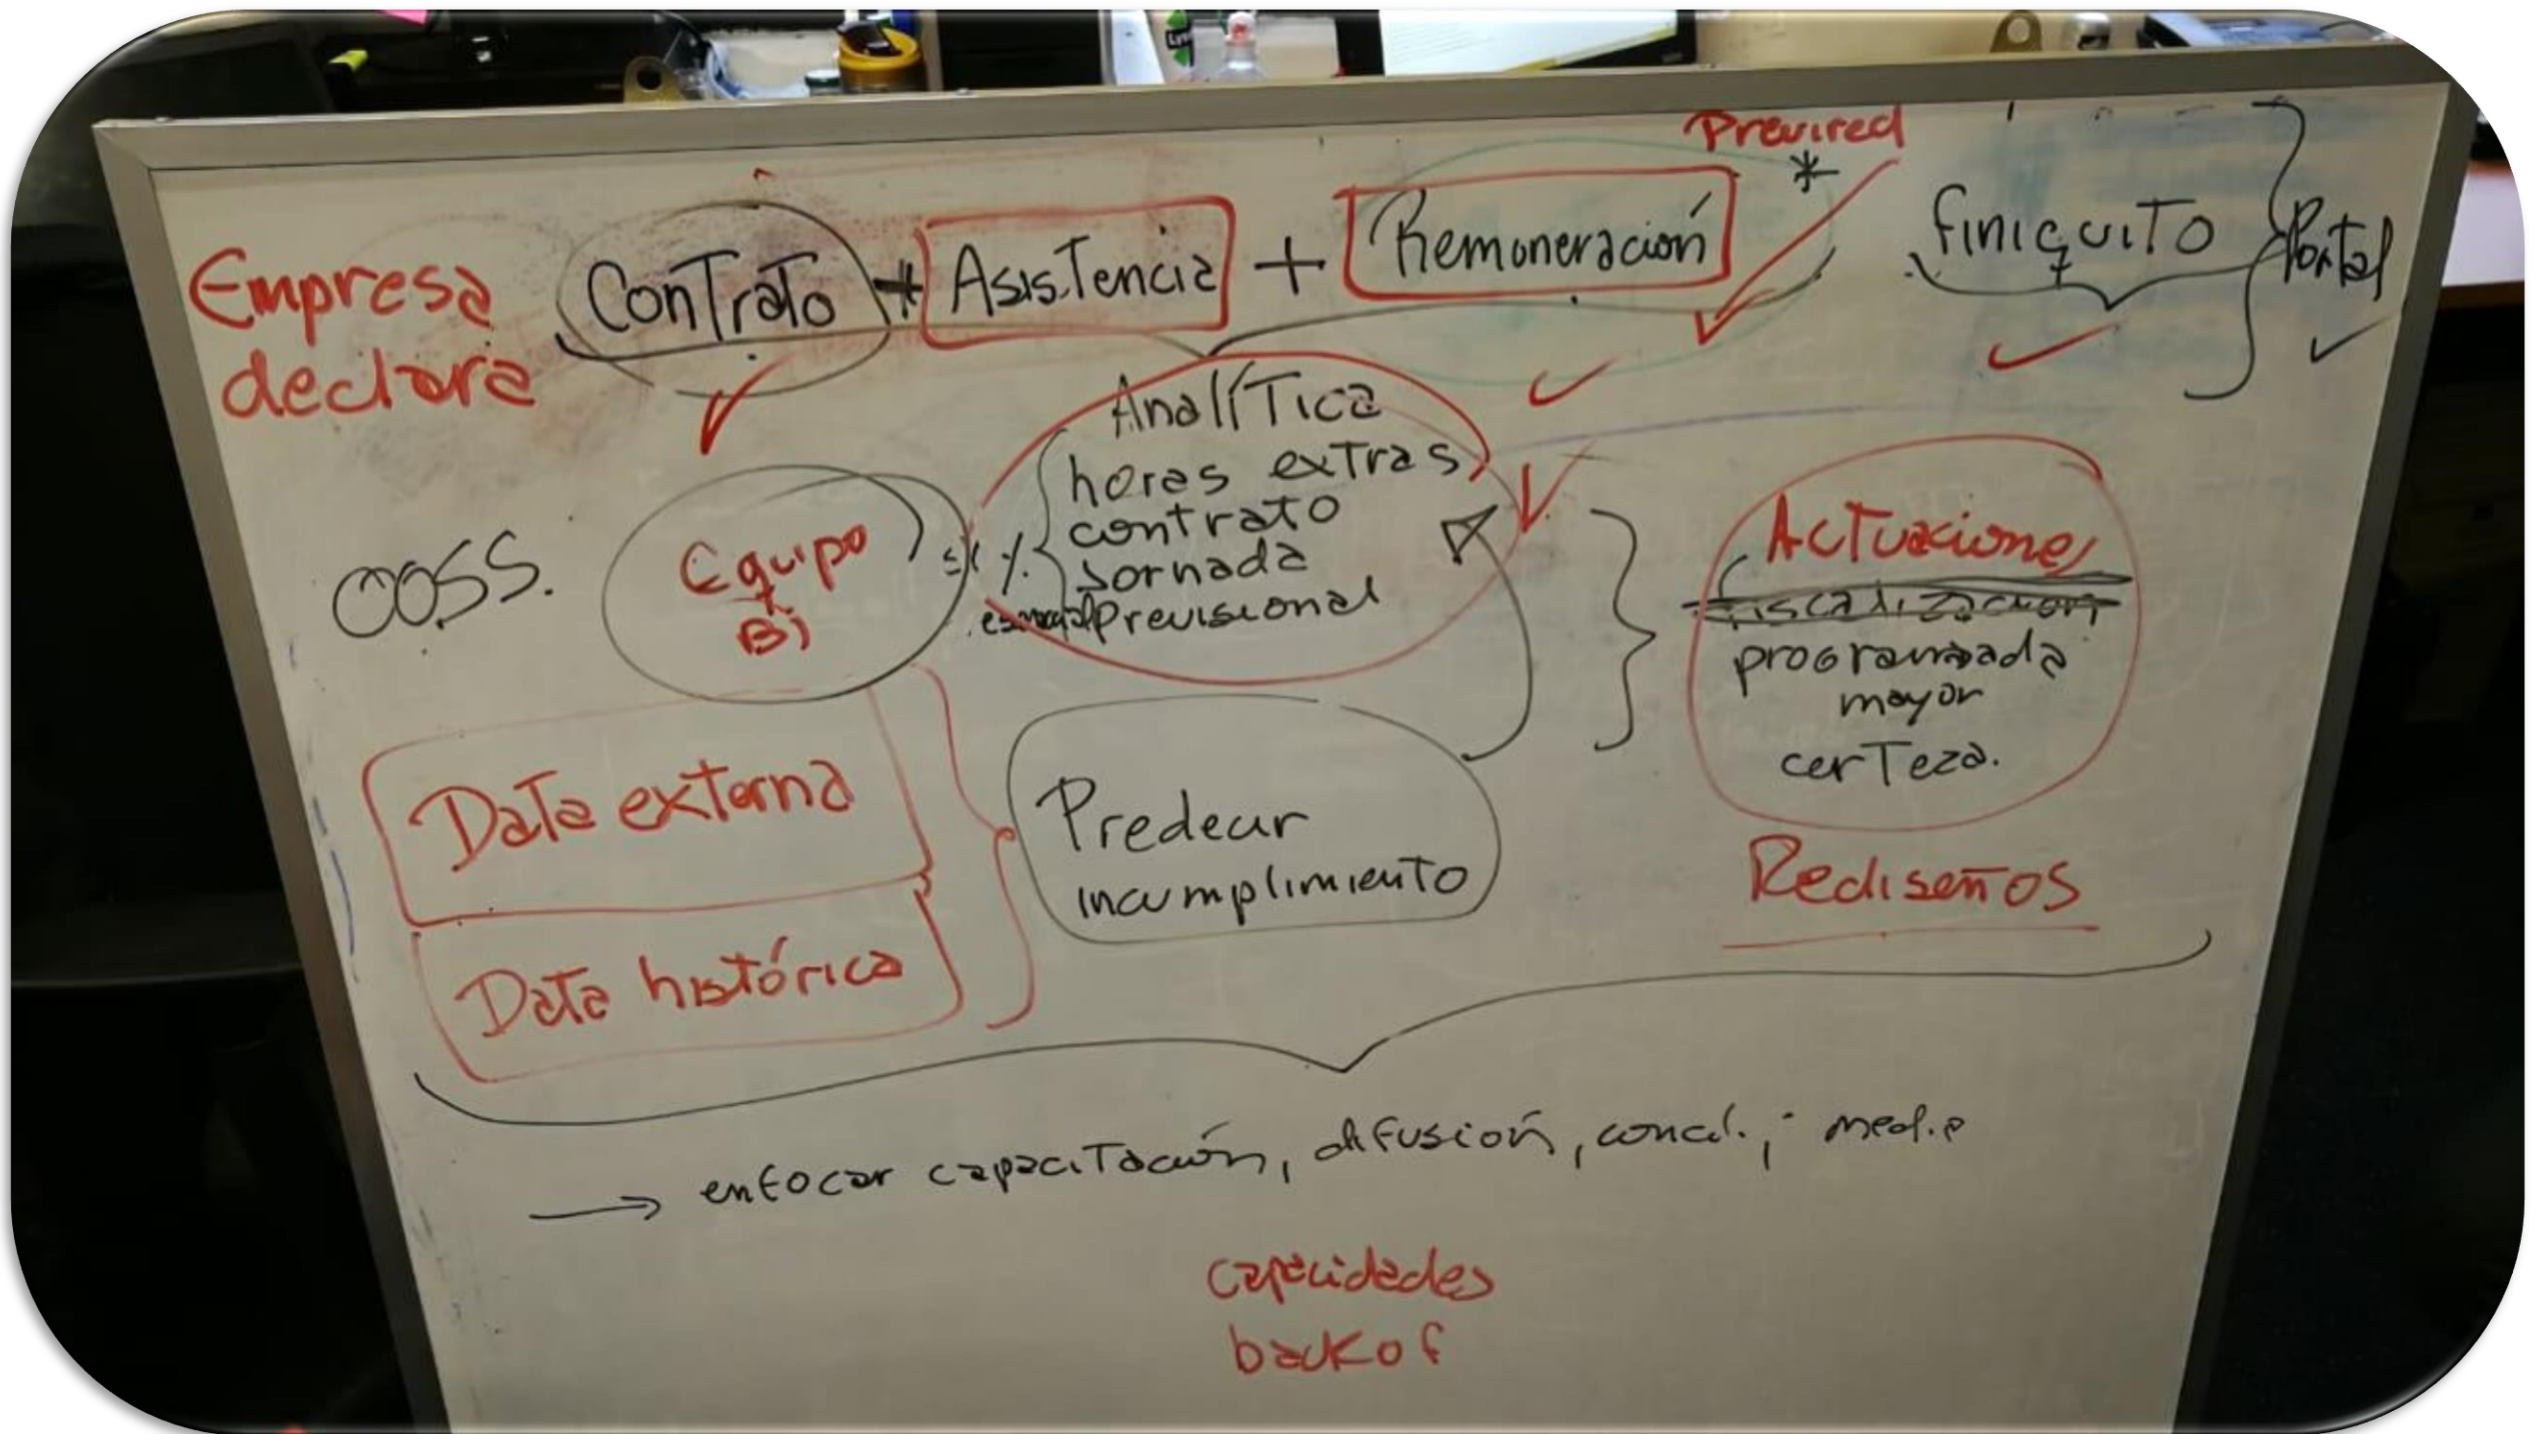 Previred
*
Empresa declara
Contrato + Asistencia + Remuneración
finiquito
Portal
Analítica
horas extras
contrato
jornada
previsional
OOSS.
Equipo
BI
Actuaciones
fiscalización
programada
mayor
certeza.
Data externa
Predecir
incumplimiento
Rediseños
Data histórica
→ enfocar capacitación, difusión, concil.,
capacidades
backof